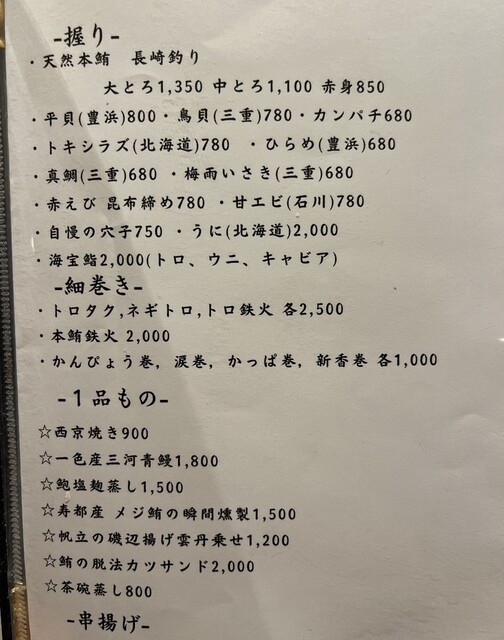 -握り-
・天然本鮪　長崎釣り
大とろ1,350 中とろ1,100 赤身850
・平貝(豊浜)800・鳥貝(三重)780・カンパチ680
・トキシラズ(北海道)780　・ひらめ(豊浜)680
・真鯛(三重)680 ・梅雨いさき(三重)680
・赤えび 昆布締め780・甘エビ(石川)780
・自慢の穴子750 ・うに(北海道)2,000
・海宝鮨2,000(トロ、ウニ、キャビア)
-細巻き-
・トロタク,ネギトロ,トロ鉄火 各2,500
・本鮪鉄火 2,000
・かんぴょう巻, 涙巻, かっぱ巻, 新香巻 各1,000
-1品もの-
☆西京焼き900
☆一色産三河青鰻1,800
☆鮑塩麹蒸し1,500
☆寿都産 メジ鮪の瞬間燻製1,500
☆帆立の磯辺揚げ雲丹乗せ1,200
☆鮪の脱法カツサンド2,000
☆茶碗蒸し800
-串揚げ-